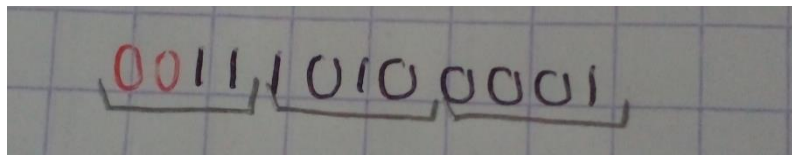 0011 1010 0001